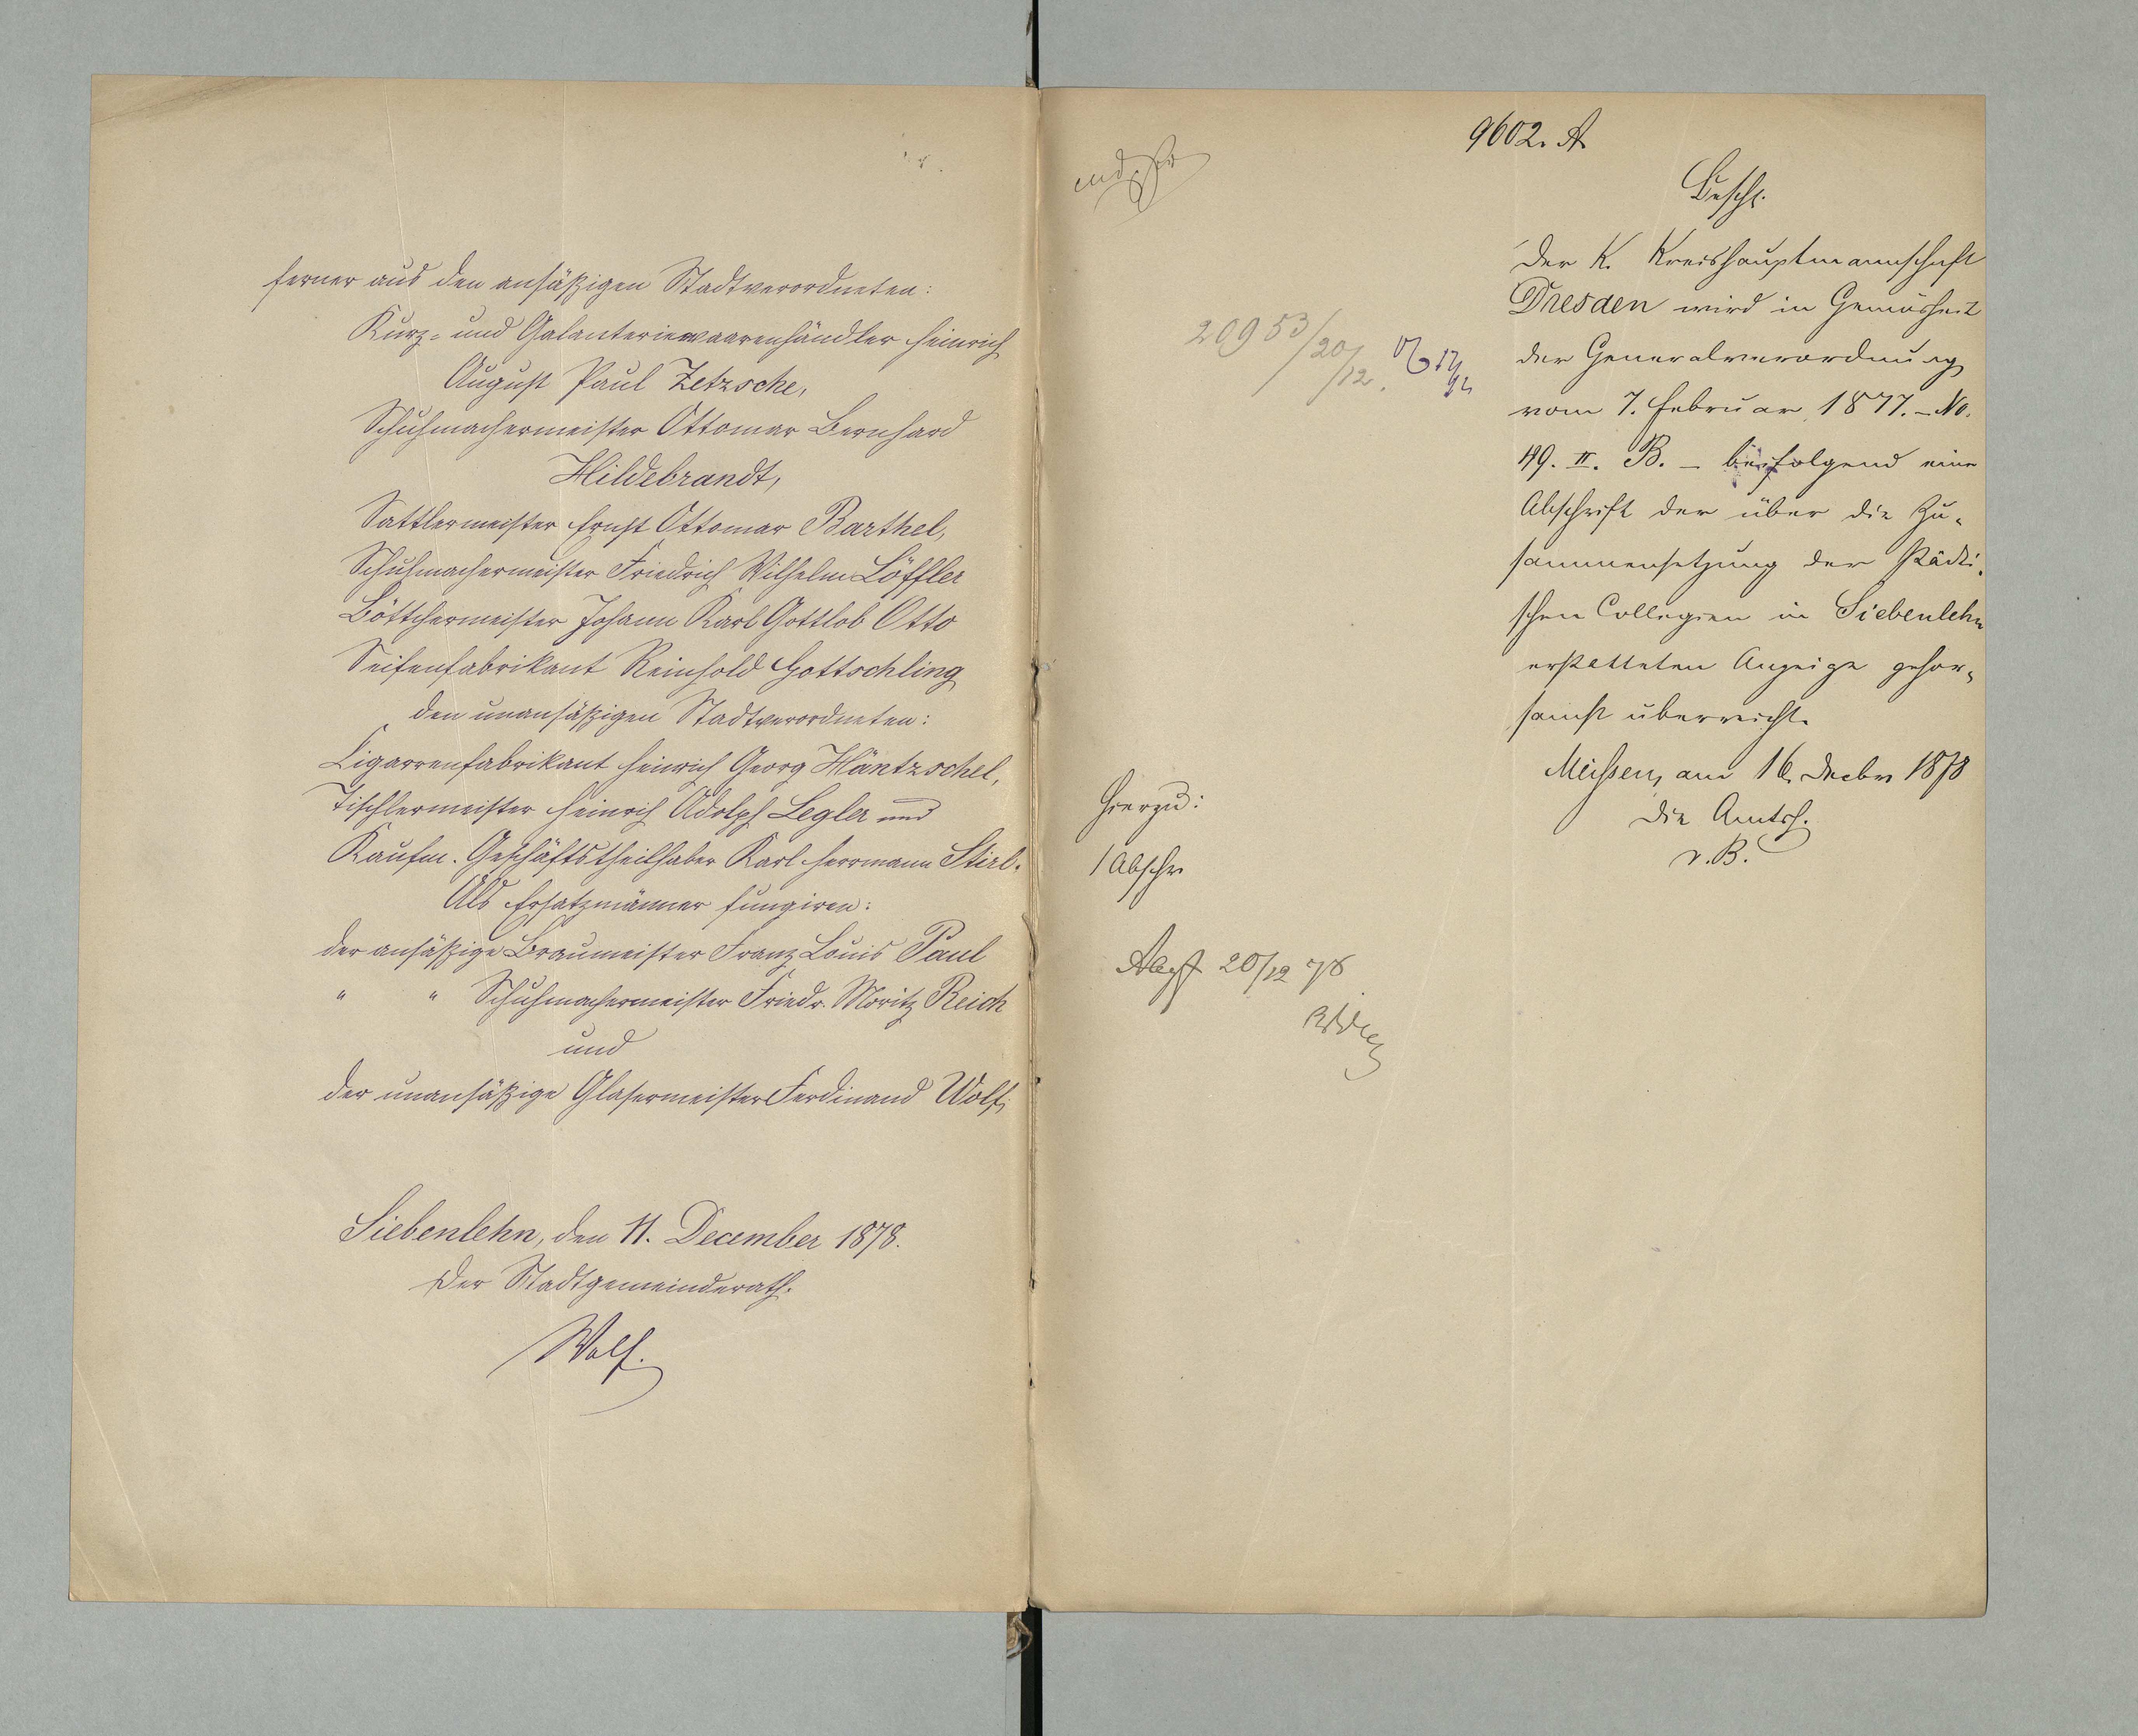 ferner aus den ansäßigen Stadtverordneten:
Kurz- und Galanteriewaarenhändler Heinrich
August Paul Zetzsche,
Schuhmachermeister Ottomar Bernhard
Hildebrandt,
Sattlermeister Ernst Ottomar Barthel,
Schuhmachermeister Friedrich Wilhelm Löffler
Böttchermeister Johann Karl Gottlob Otto
Seifenfabrikant Reinhold Gottschling
den unansäßigen Stadtverordneten:
Cigarrenfabrikant Heinrich Georg Häntzschel,
Tischlermeister Heinrich Adolph Legler und
Kaufm. Geschäftstheilhaber Karl Herrmann Stirl.
Als Ersatzmänner fungiren:
der ansäßige Braumeister Franz Louis Paul
" " Schuhmachermeister Friedr. Moritz Reich
und
der unansäßige Glasermeister Ferdinand Wolf.
Siebenlehn, den 11. December 1878.
Der Stadtgemeinderath.
Wolf.
9602. A
Beschl.
Der K. Kreishauptmannschaft
Dresden wird in Gemäsheit
der Generalverordnung
vom 7. Februar 1877. - No.
119. II. B. - beifolgend eine
Abschrift der über die Zu-
sammensetzung der städti-
schen Collegien in Siebenlehn
erstatteten Anzeige gehor-
samst überreicht.
Meißen, am 16. Decbr 1878
Die Amtsh.
v. B.
20953/20/12.
17/12
Hierzu:
1 Abschr.
Abgst 20/12 78